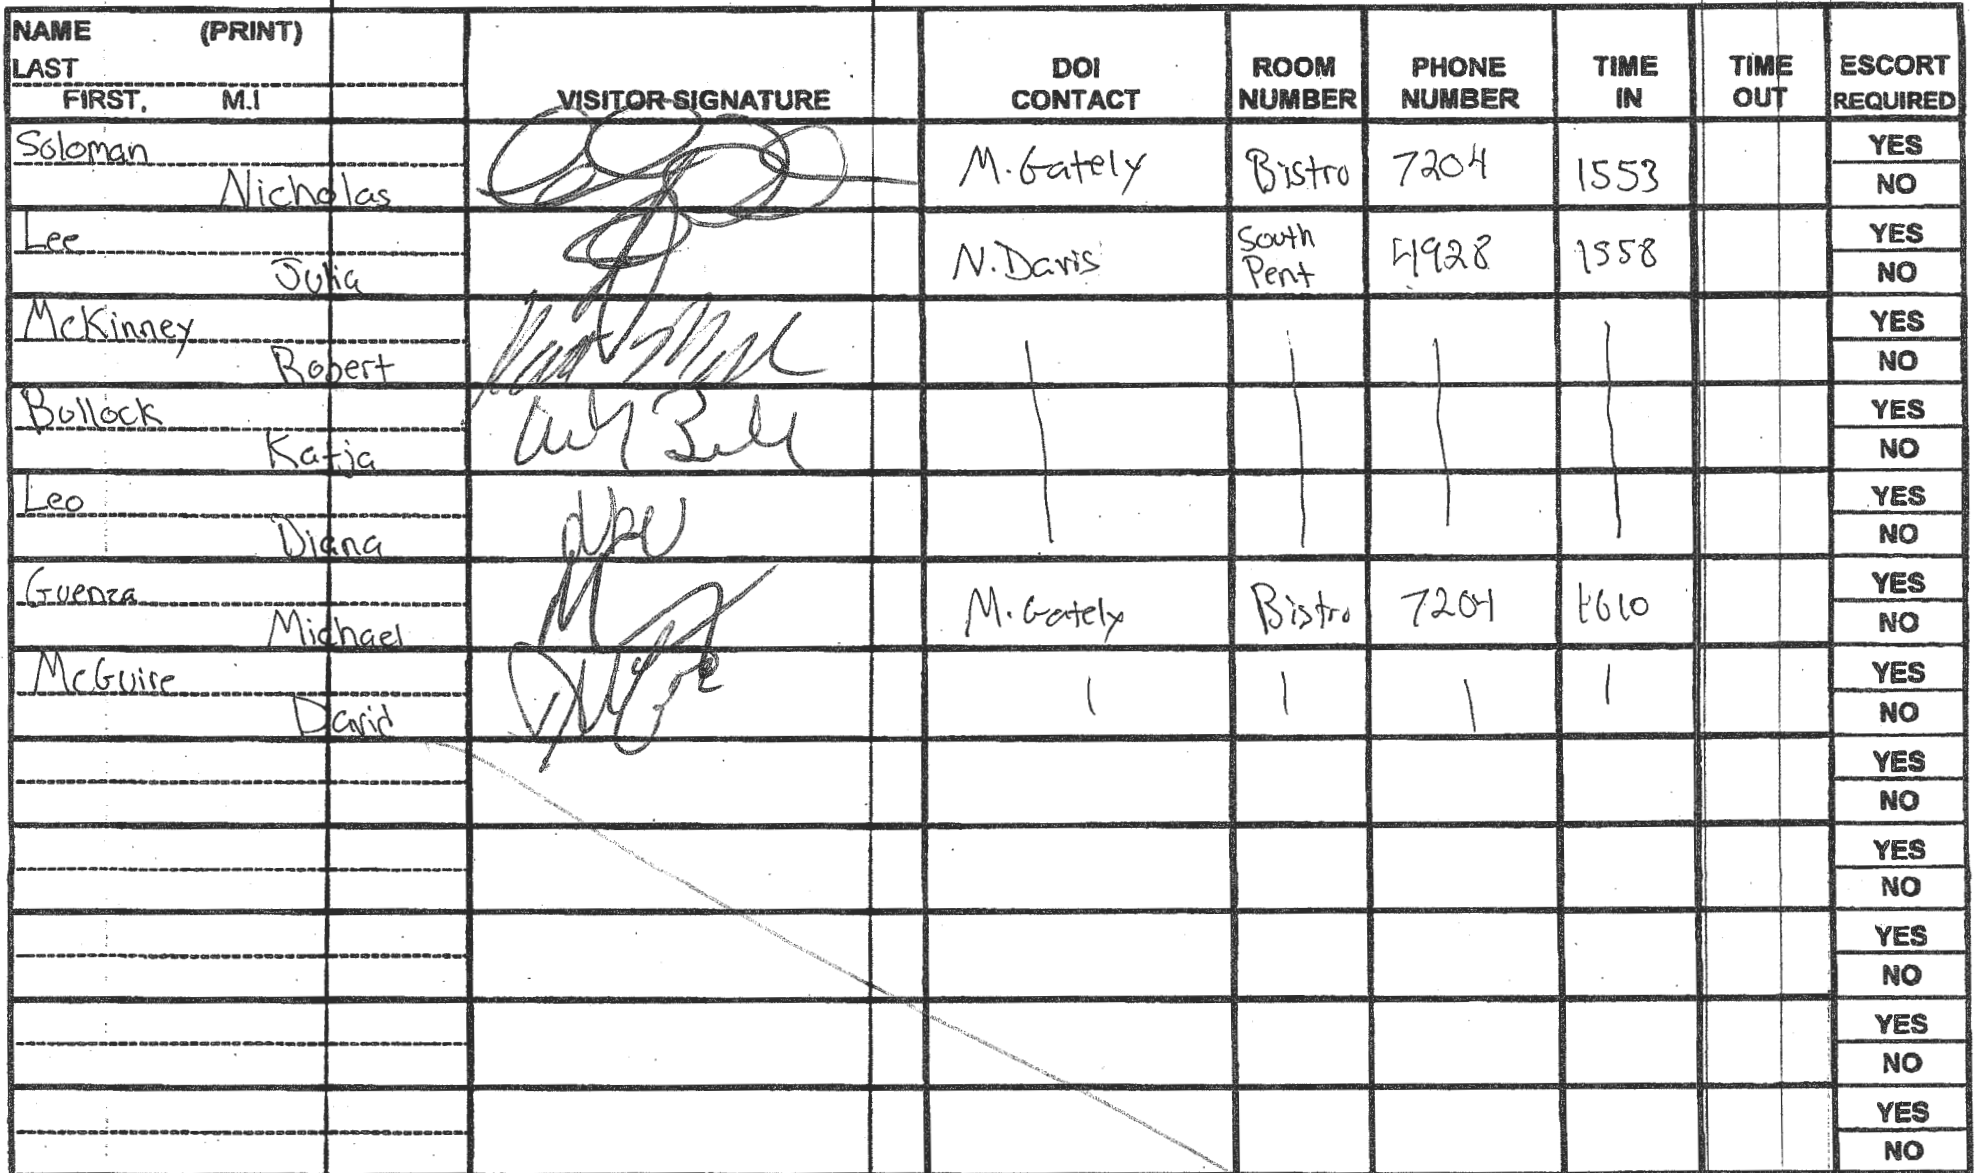 NAME (PRINT)
LAST
FIRST, M.I
VISITOR SIGNATURE
DOI CONTACT
ROOM NUMBER
PHONE NUMBER
TIME IN
TIME OUT
ESCORT REQUIRED
Soloman
Nicholas
M. Gately
Bistro
7204
1553
YES
NO
Lee
Julia
N. Davis
South Pent
4928
1558
YES
NO
McKinney
Robert
YES
NO
Bullock
Katja
YES
NO
Leo
Diana
YES
NO
Guenza
Michael
M. Gately
Bistro
7204
1610
YES
NO
McGuire
David
YES
NO
YES
NO
YES
NO
YES
NO
YES
NO
YES
NO